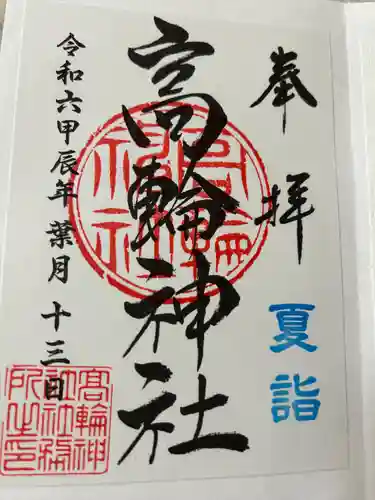 奉拝
夏詣
高輪神社
令和六甲辰年葉月十三日
高輪神社
髙輪神
社社務
所之印